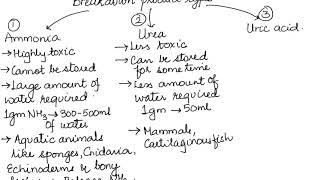 Breakdown product type
①
Ammonia
→Highly toxic
→Cannot be stored
→Large amount of
water required
1gm NH₃→300-500ml
of water
→Aquatic animals
like sponges, Cnidaria,
Echinoderms & bony
②
Urea
→Less toxic
→Can be stored
for some time
→Less amount of
water required
1gm → 50ml
→Mammals,
Cartilagenous fish
③
Uric acid.